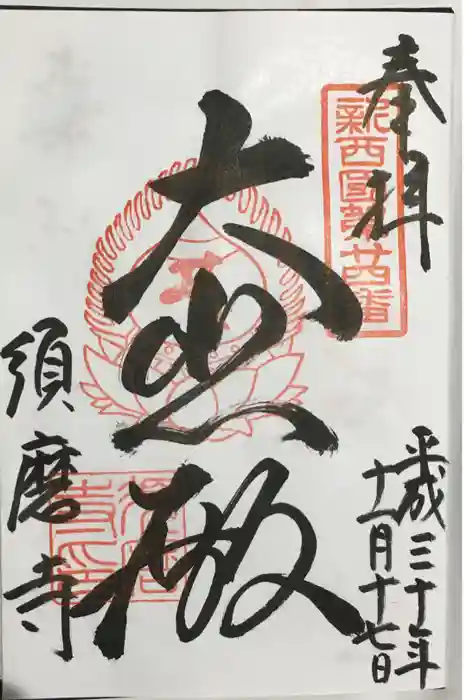 奉拝
新西國第廿四番
大悲殿
平成三十年
十一月十七日
須磨寺